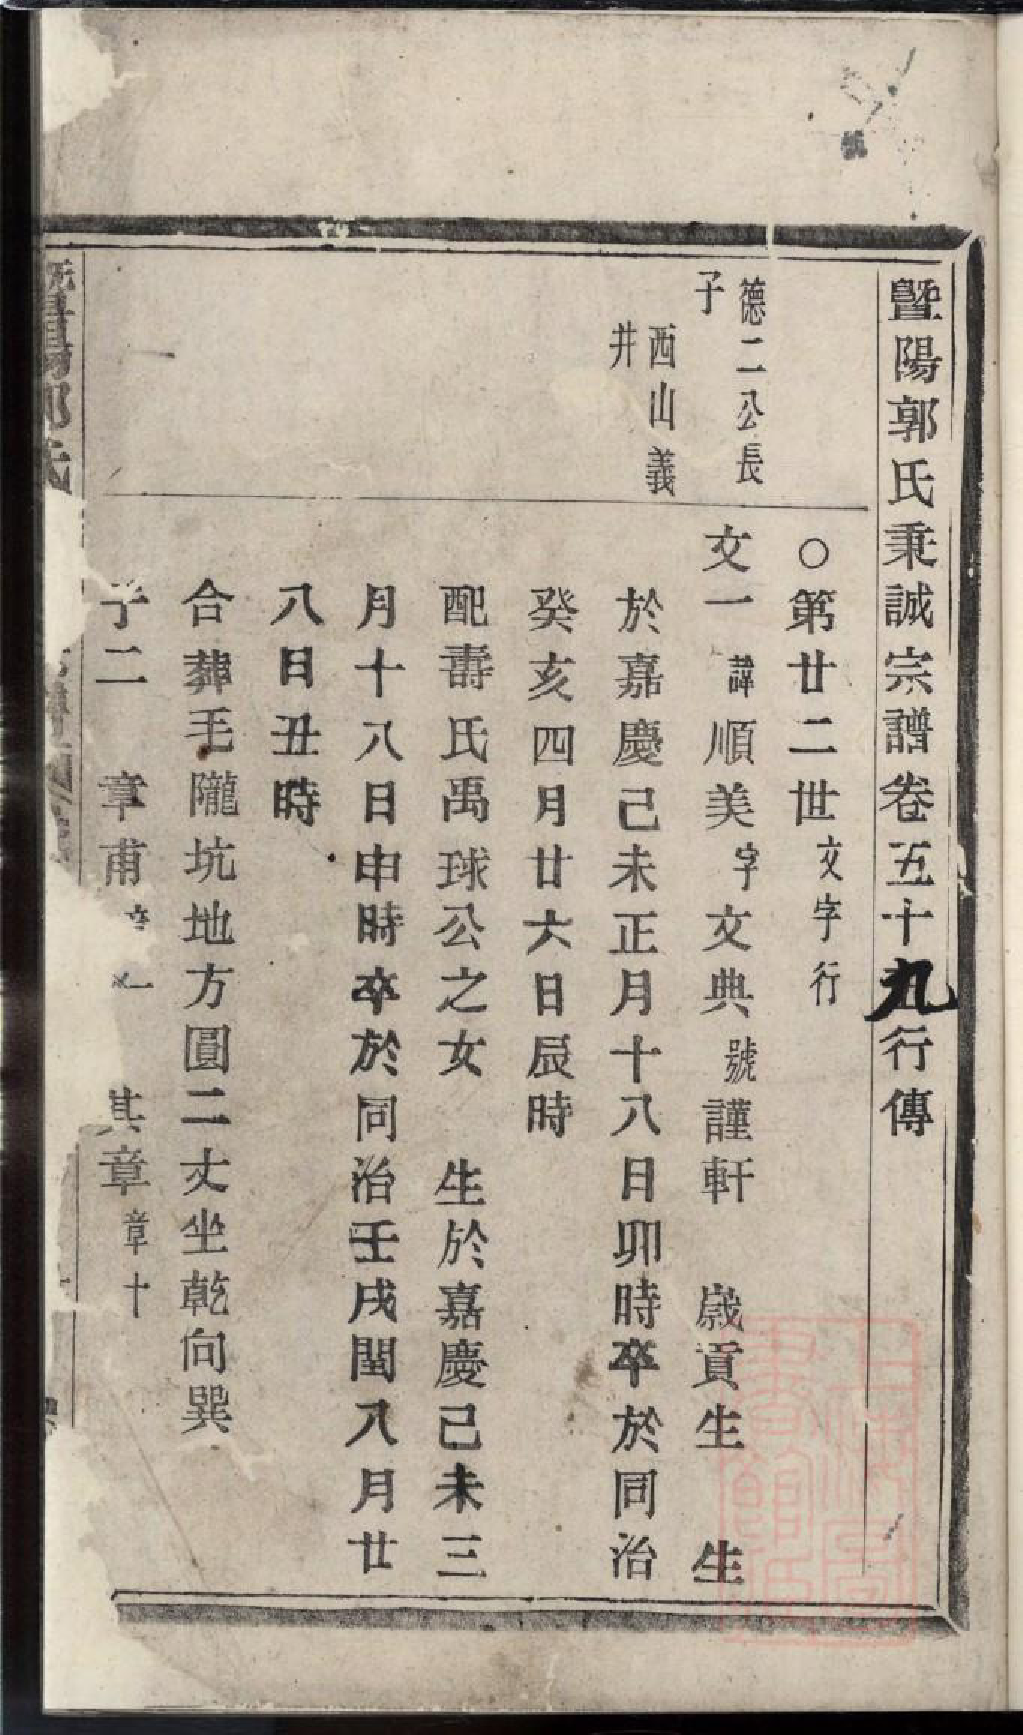 暨陽郭氏秉誠宗譜卷五十九行傳
○第廿二世文字行
德二公長
子
西山義
井
文一諱順美字文典號謹軒 歲貢生 生
於嘉慶己未正月十八日卯時卒於同治
癸亥四月廿六日辰時
配壽氏禹球公之女 生於嘉慶己未三
月十八日申時卒於同治壬戌閏八月廿
八日丑時
合葬毛隴坑地方圓二丈坐乾向巽
子二 章甫 其章章十
暨陽郭氏